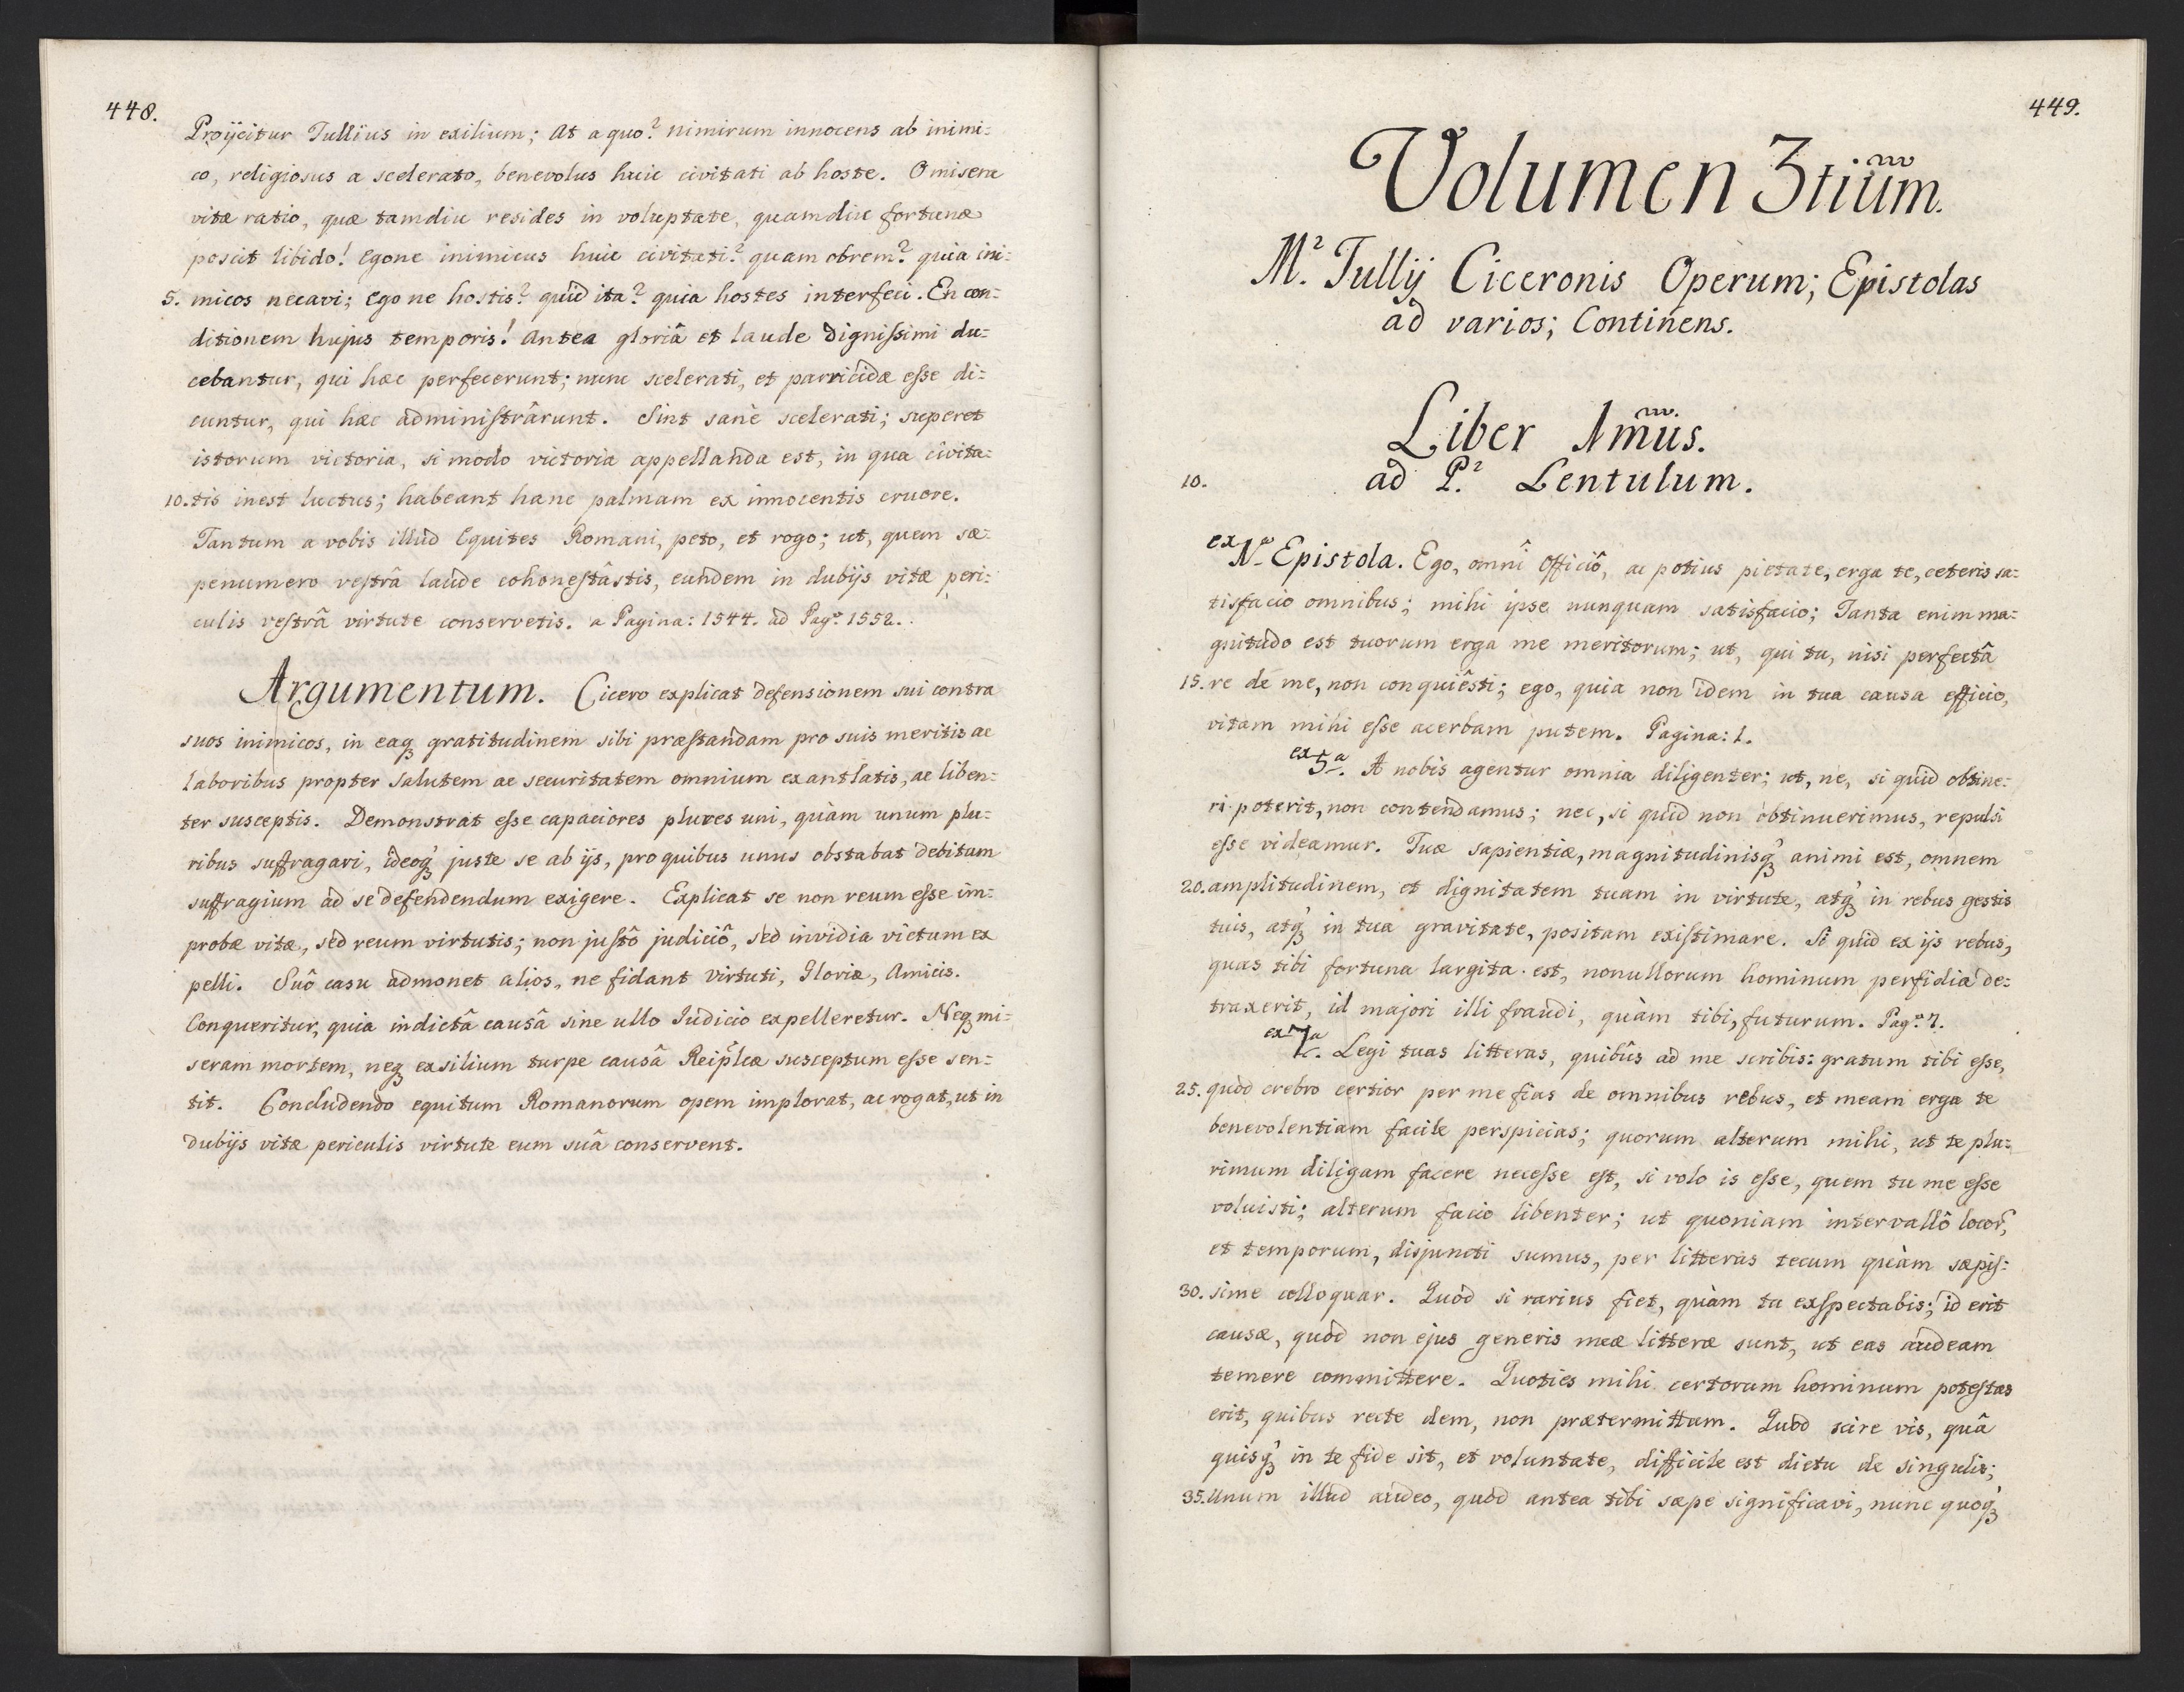 448.
Proÿcitur Tullius in exilium; At a quo? nimirum innocens ab inimi=
co, religiosus a scelerato, benevolus huic civitati ab hoste. O misera
vitæ ratio, quæ tamdiu resides in voluptate, quamdiu fortunæ
poscit libido! Egone inimicus huic civitati? quam obrem? quia ini=
5. micos necavi; Ego ne hostis? quid ita? quia hostes interfeci. En con=
ditionem hujus temporis! Antea gloriâ et laude digniſsimi du=
cebantur, qui hæc perfecerunt; nunc scelerati, et parricidæ eſse di=
cuntur, qui hæc adminiſtrârunt. Sint sanè scelerati; superet
istorum victoria, si modo victoria appellanda est, in qua civita=
10. tis inest luctus; habeant hanc palmam ex innocentis cruore.
Tantum a vobis illud Equites Romani, peto, et rogo; ut, quem sæ=
penumero veſtrâ laude cohoneſtâstis, eundem in dubijs vitæ peri=
culis veſtrâ virtute conservetis. a Pagina: 1544. ad Pagᵃ: 1552.
Argumentum. Cicero explicat defensionem sui contra
suos inimicos, in eaq̨ gratitudinem sibi præſtandam pro suis meritis ac
laboribus propter salutem ac securitatem omnium exantlatis, ac liben=
ter susceptis. Demonstrat eſse capaciores plures uni, quàm unum plu=
ribus suffragari, ideoq̨ juste se ab ijs, pro quibus unus obstabat debitum
suffragium ad se defendendum exigere. Explicat se non reum eſse im=
probæ vitæ, sed reum virtutis; non juſtô judiciô, sed invidia victum ex
pelli. Suô casu admonet alios, ne fidant Virtuti, Gloriæ, Amicis.
Conqueritur, quia indictâ causâ sine ullo Iudicio expelleretur. Neq̨ mi=
seram mortem, neq̨ exsilium turpe causâ Reiplcæ susceptum eſse sen=
tit. Concludendo equitum Romanorum opem implorat, ac rogat, ut in
dubijs vitæ periculis virtute eum suâ conservent.
449.
Volumen 3tium.
M.² Tullij Ciceronis Operum; Epistolas
ad varios; Continens.
Liber 1mus.
10. ad P.² Lentulum.
ex 1ᵃ Epistola. Ego, omni Officiô, ac potius pietate, erga te, ceteris sa=
tisfacio omnibus; mihi ipse nunquam satisfacio; Tanta enim ma=
gnitudo est tuorum erga me meritorum; ut, qui tu, nisi perfectâ
15. re de me, non conquiêsti; ego, quia non idem in tua causa efficio,
vitam mihi eſse acerbam putem. Pagina: 1.
ex 5ᵃ. A nobis agentur omnia diligenter; ut, ne, si quid obtine=
ri poterit, non contendamus; nec, si quid non obtinuerimus, repulsi
eſse videamur. Tuæ sapientiæ, magnitudinisq̨ animi est, omnem
20. amplitudinem, et dignitatem tuam in virtute, atq̨ in rebus gestis
tuis, atq̨ in tua gravitate, positam exiſtimare. Si quid ex ijs rebus,
quas tibi fortuna largita est, nonullorum hominum perfidia de=
traxerit, id majori illi fraudi, quàm tibi, futurum. Pagᵃ 7.
ex 7ᵃ. Legi tuas litteras, quibus ad me scribis: gratum tibi eſse,
25. quòd crebro certior per me fias de omnibus rebus, et meam erga te
benevolentiam facile perspicias; quorum alterum mihi, ut te plu=
rimum diligam facere neceſse eſt, si volo is eſse, quem tu me eſse
voluisti; alterum facio libenter; ut quoniam intervallô locor̃,
et temporum, disjuncti sumus, per litteras tecum quàm sæpiſ=
30. sime colloquar. Quòd si rarius fiet, quàm tu exſpectabis; id erit
causæ, quòd non ejus generis meæ litteræ sunt, ut eas audeam
temere committere. Quoties mihi certorum hominum poteſtas
erit, quibus recte dem, non prætermittam. Quòd scire vis, quâ
quisq̨ in te fide sit, et voluntate, difficile est dictu de singulis;
35. Unum illud audeo, quòd antea tibi sæpe significavi, nunc quoq̨